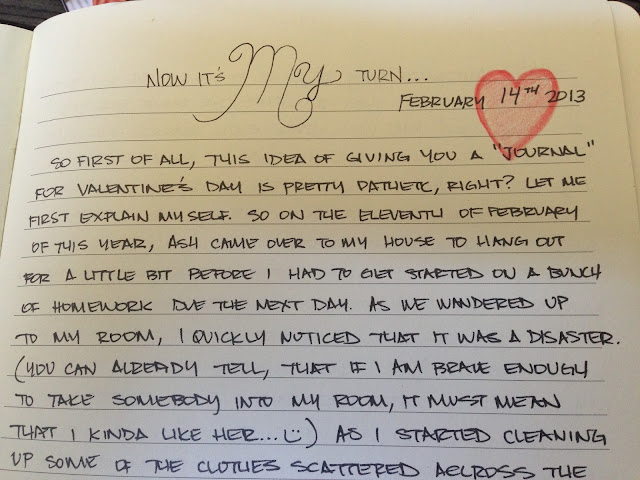 NOW IT'S My TURN...
FEBRUARY 14TH 2013
SO FIRST OF ALL, THIS IDEA OF GIVING YOU A "JOURNAL"
FOR VALENTINE'S DAY IS PRETTY PATHETC, RIGHT? LET ME
FIRST EXPLAIN MYSELF. SO ON THE ELEVENTH OF FEBRUARY
OF THIS YEAR, ASH CAME OVER TO MY HOUSE TO HANG OUT
FOR A LITTLE BIT BEFORE I HAD TO GET STARTED ON A BUNCH
OF HOMEWORK DUE THE NEXT DAY. AS WE WANDERED UP
TO MY ROOM, I QUICKLY NOTICED THAT IT WAS A DISASTER.
(YOU CAN ALREADY TELL, THAT IF I AM BRAVE ENOUGH
TO TAKE SOMEBODY INTO MY ROOM, IT MUST MEAN
THAT I KINDA LIKE HER... :)) AS I STARTED CLEANING
UP SOME OF THE CLOTHES SCATTERED AECROSS THE